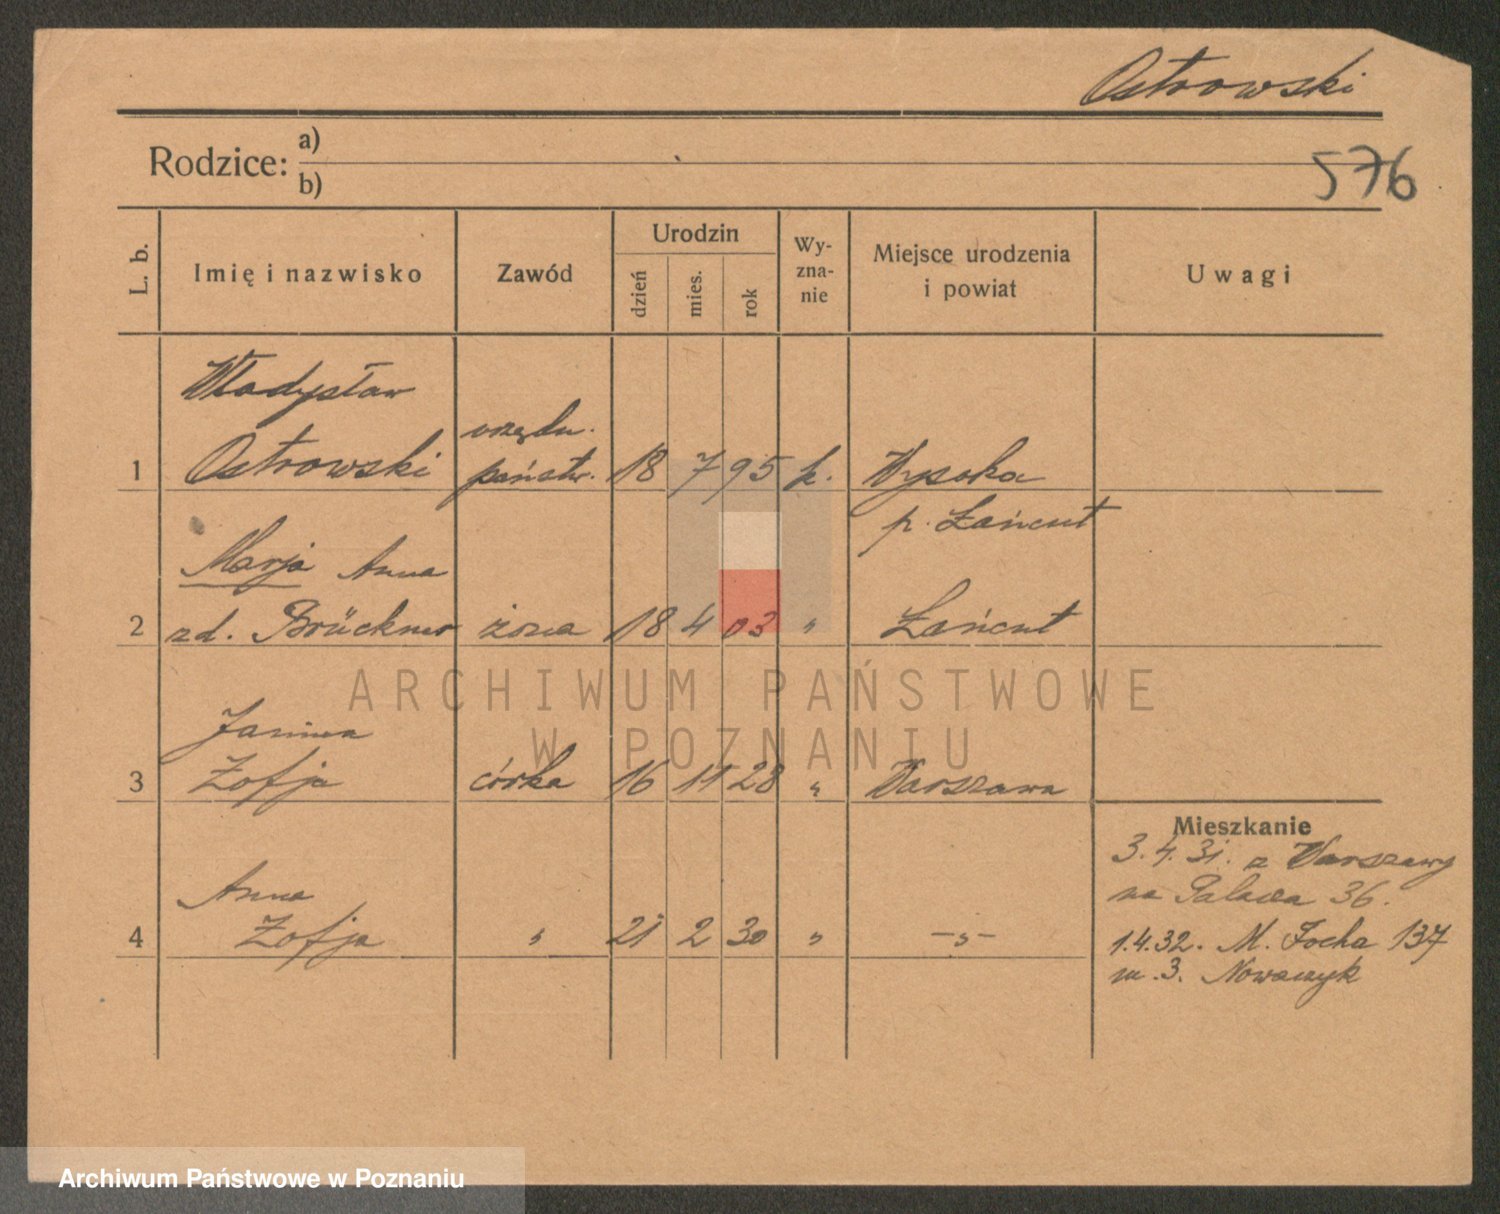 Ostrowski
Rodzice: a)
b)
576
L. b.
Imię i nazwisko
Zawód
Urodzin
dzień
mies.
rok
Wy-
zna-
nie
Miejsce urodzenia
i powiat
Uwagi
Władysław
urzędn.
1 Ostrowski państw. 18 7 95 k. Wysoka
p. Łańcut
Marja Anna
2 zd. Brückner żona 18 4 03 " Łańcut
Janina
3 Zofja córka 16 11 28 " Warszawa
Mieszkanie
3.4.31. z Warszawy
Anna
na Palacza 36.
4 Zofja " 21 2 30 " -"-
1.4.32. M. Focha 137
m.3. Nowaczyk
ARCHIWUM PAŃSTWOWE
W POZNANIU
Archiwum Państwowe w Poznaniu